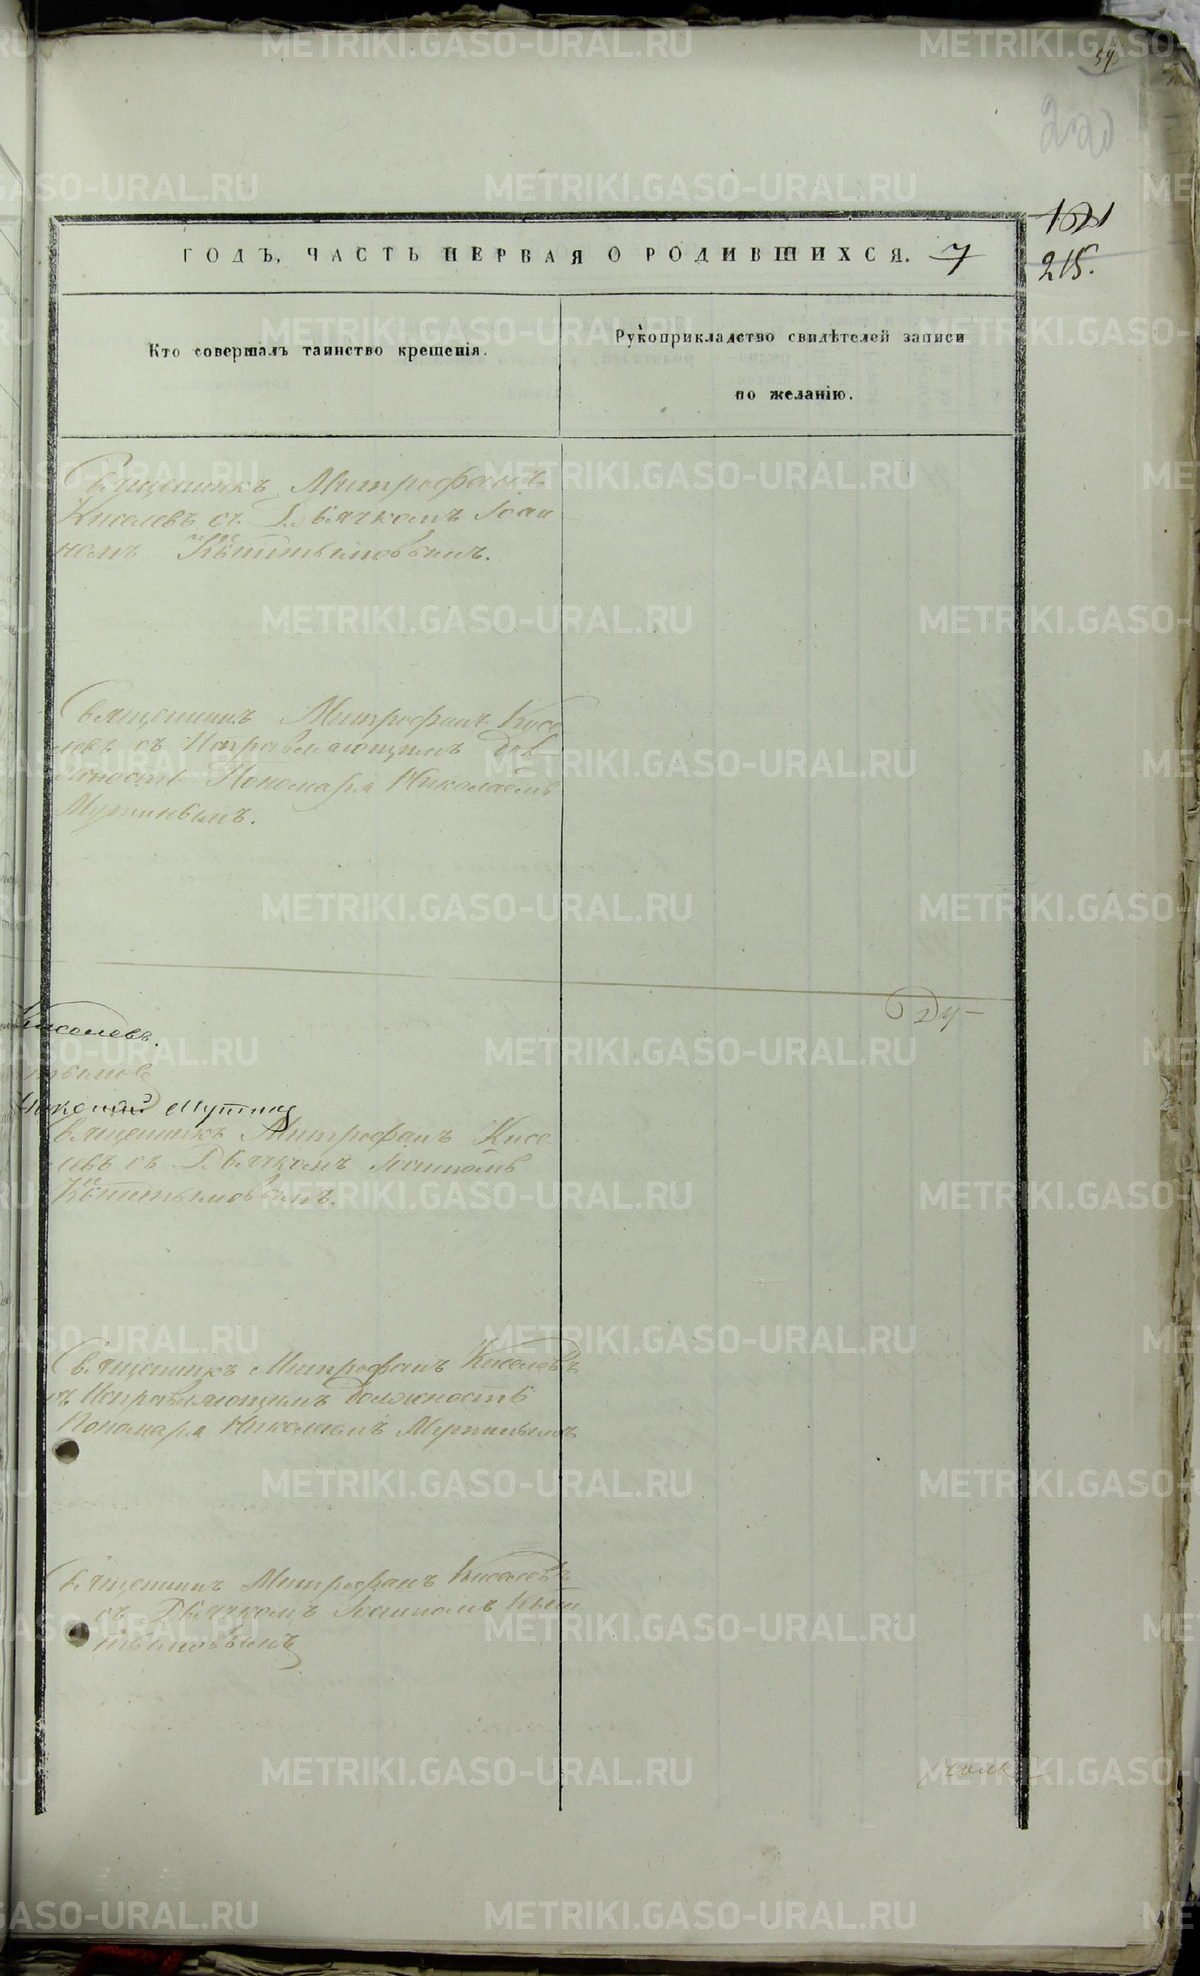 59
220
121
ГОДЪ, ЧАСТЬ ПЕРВАЯ О РОДИВШИХСЯ. 7
215.
Кто совершалъ таинство крещенія.
Рукоприкладство свидѣтелей записи
по желанію.
Священникъ Митрофанъ
Киселевъ съ Дьячкомъ Іоан
номъ
Священникъ Митрофанъ Кисе
левъ съ Исправляющимъ дол
жность Пономаря Николаемъ
Мутинымъ.
Киселевъ.
Николай Мутинъ
Священникъ Митрофанъ Кисе
левъ съ Дьячкомъ Іоанномъ
Священникъ Митрофанъ Киселевъ
съ Исправляющимъ должность
Пономаря Николаемъ Мутинымъ
Священникъ Митрофанъ Киселевъ
съ Дьячкомъ Іоанномъ
METRIKI.GASO-URAL.RU